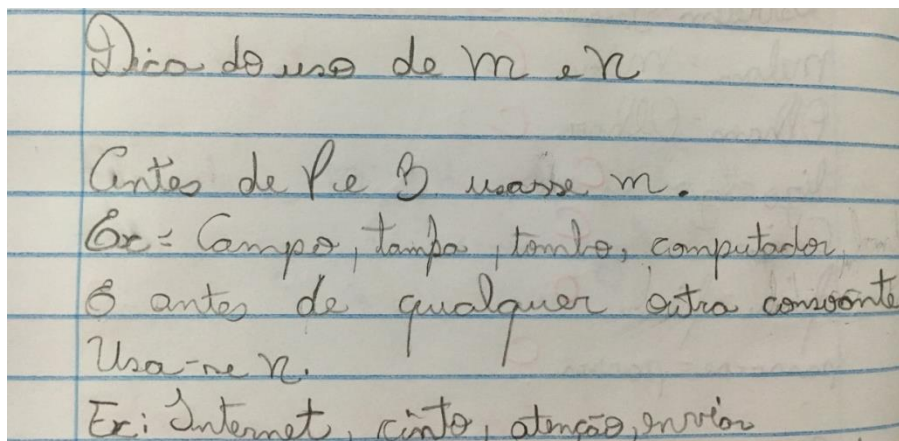 Dica do uso de m e n
Antes de P e B usasse m.
Ex: Campo, tampa, tombo, computador.
E antes de qualquer outra consoante
Usa-se n.
Ex: Internet, cinto, atenção, enviar